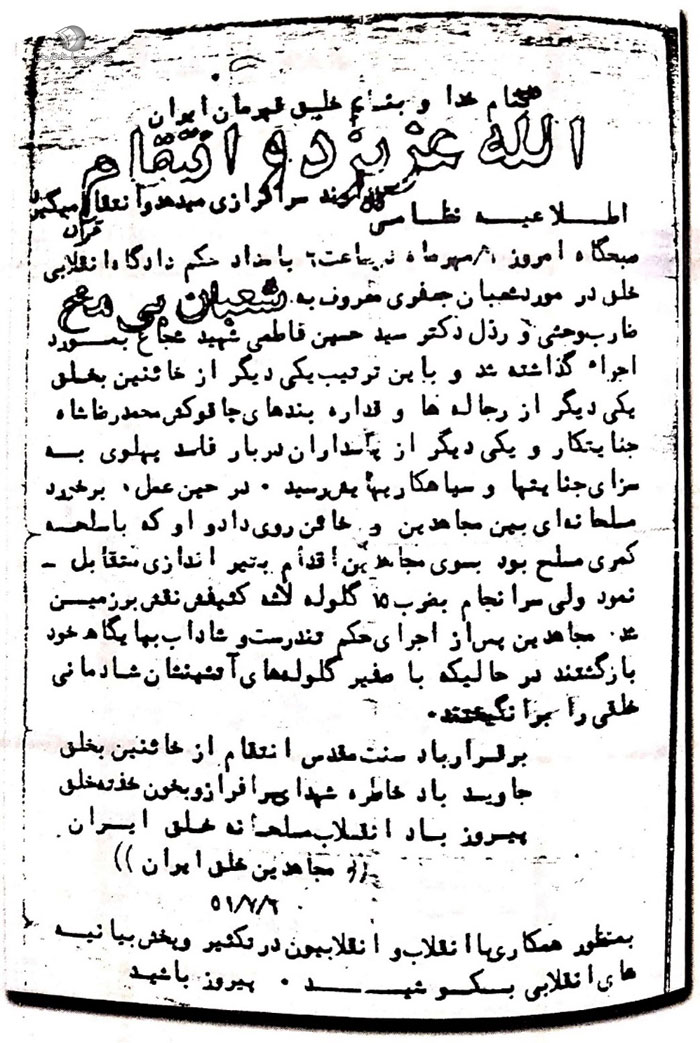 بنام خدا و بنام خلق قهرمان ایران
الله عزیز ذو انتقام
خداوند سرافرازی میدهد و انتقام میگیرد
قرآن
اطلاعیه نظامی
صبحگاه امروز ۶ مهرماه ساعت ۶ بامداد حکم دادگاه انقلابی
خلق در مورد شعبان جعفری معروف به شعبان بی مخ
ضارب وحشی و رذل دکتر سید حسین فاطمی شهید شجاع بمورد
اجراء گذاشته شد و باین ترتیب یکی دیگر از خائنین بخلق
یکی دیگر از رجاله ها و قداره بندهای چاقوکش محمدرضا شاه
جنایتکار و یکی دیگر از پاسداران دربار فاسد پهلوی به
سزای جنایتها و سیاهکاریهایش رسید . در حین عمل ، برخورد
مسلحانه‌ای بین مجاهدین و خائن روی داد و او که با سلحه
کمری مسلح بود بسوی مجاهدین اقدام بتیر اندازی متقابل -
نمود ولی سرانجام بضرب ۱۵ گلوله لاشه کثیفش نقش بر زمین
شد . مجاهدین پس از اجرای حکم تندرست و شاداب بپایگاه خود
بازگشتند در حالیکه با صفیر گلوله‌های آتشینشان شادمانی
خلقی را برانگیختند .
برقرار باد سنت مقدس انتقام از خائنین بخلق
جاوید باد خاطره شهدای سرافراز و بخون خفته خلق
پیروز باد انقلاب مسلحانه خلق ایران
(( مجاهدین خلق ایران ))
۵۱/۷/۶
بمنظور همکاری با انقلاب و انقلابیون در تکثیر و پخش بیانیه
های انقلابی بکوشید . پیروز باشید